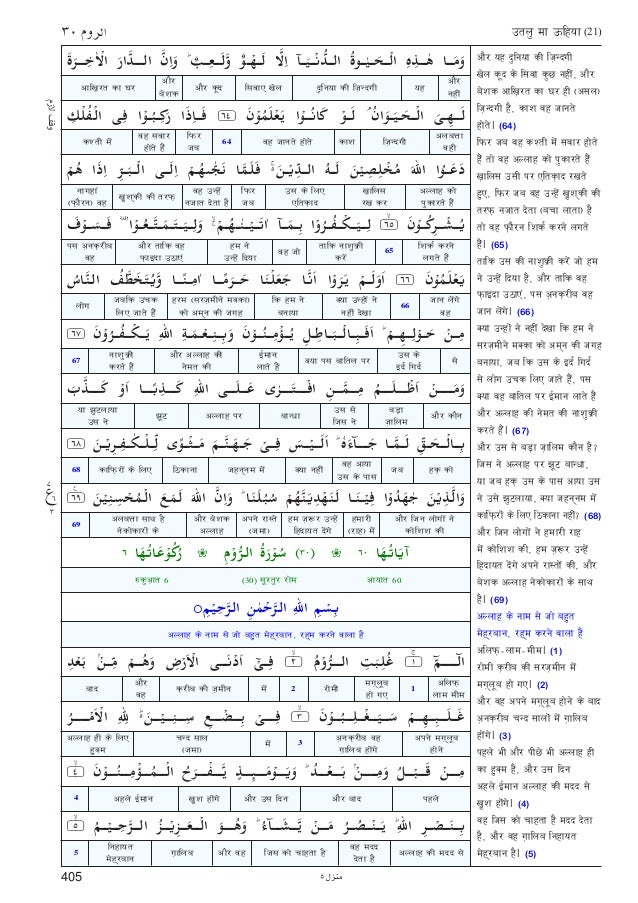 الروم ٣٠
उतलु मा ऊहिया (21)
وَمَا هٰذِهِ الْحَيٰوةُ الدُّنْيَآ اِلَّا لَهْوٌ وَّلَعِبٌ ؕ وَاِنَّ الدَّارَ الْاٰخِرَةَ
और नहीं यह दुनिया की ज़िन्दगी सिवाए खेल और कूद और बेशक आख़िरत का घर
لَهِىَ الْحَيَوَانُ ۘ لَوْ كَانُوْا يَعْلَمُوْنَ ٦٤ فَاِذَا رَكِبُوْا فِى الْفُلْكِ
अलबत्ता वही ज़िन्दगी काश वह जानते होते 64 फिर जब वह सवार होते हैं कश्ती में
دَعَوُا اللهَ مُخْلِصِيْنَ لَهُ الدِّيْنَ ۬ۚ فَلَمَّا نَجّٰىهُمْ اِلَى الْبَرِّ اِذَا هُمْ
अल्लाह को पुकारते हैं ख़ालिस रख कर उस के लिए एतिक़ाद फिर जब वह उन्हें नजात देता है ख़ुश्की की तरफ़ नागहां (फ़ौरन) वह
يُشْرِكُوْنَ ٦٥ لِيَكْفُرُوْا بِمَآ اٰتَيْنٰهُمْ ۙۚ وَلِيَتَمَتَّعُوْا ۥ فَسَوْفَ
शिर्क करने लगते हैं 65 ताकि नाशुक्री करें वह जो हम ने उन्हें दिया और ताकि वह फ़ाइदा उठाएं पस अनक़रीब वह
يَعْلَمُوْنَ ٦٦ اَوَلَمْ يَرَوْا اَنَّا جَعَلْنَا حَرَمًا اٰمِنًا وَّيُتَخَطَّفُ النَّاسُ
जान लेंगे वह 66 क्या उन्हों ने नहीं देखा कि हम ने बनाया हरम (सरज़मीने मक्का) को अम्न की जगह जबकि उचक लिए जाते हैं लोग
مِنْ حَوْلِهِمْ ؕ اَفَبِالْبَاطِلِ يُؤْمِنُوْنَ وَبِنِعْمَةِ اللهِ يَكْفُرُوْنَ ٦٧
से उस के इर्द गिर्द क्या पस बातिल पर ईमान लाते हैं और अल्लाह की नेमत की नाशुक्री करते हैं 67
وَمَنْ اَظْلَمُ مِمَّنِ افْتَرٰى عَلَى اللهِ كَذِبًا اَوْ كَذَّبَ
और कौन बड़ा ज़ालिम उस से जिस ने बान्धा अल्लाह पर झूट या झुटलाया उस ने
بِالْحَقِّ لَمَّا جَآءَهٗ ؕ اَلَيْسَ فِىْ جَهَنَّمَ مَثْوًى لِّلْكٰفِرِيْنَ ٦٨
हक़ को जब वह आया उस के पास क्या नहीं जहन्नम में ठिकाना काफ़िरों के लिए 68
وَالَّذِيْنَ جَاهَدُوْا فِيْنَا لَنَهْدِيَنَّهُمْ سُبُلَنَا ؕ وَاِنَّ اللهَ لَمَعَ الْمُحْسِنِيْنَ ٦٩
और जिन लोगों ने कोशिश की हमारी (राह) में हम ज़रूर उन्हें हिदायत देंगे अपने रास्ते (जमा) और बेशक अल्लाह अलबत्ता साथ है नेकोकारों के 69
اٰيَاتُهَا ٦٠ (٣٠) سُوْرَةُ الرُّوْمِ رُكُوْعَاتُهَا ٦
आयात 60 (30) सूरतुर रोम रुकुआत 6
بِسْمِ اللهِ الرَّحْمٰنِ الرَّحِيْمِ
अल्लाह के नाम से जो बहुत मेहरबान, रहम करने वाला है
الٓـمّٓ ١ غُلِبَتِ الرُّوْمُ ٢ فِىْٓ اَدْنَى الْاَرْضِ وَهُمْ مِّنْۢ بَعْدِ
अलिफ़ लाम मीम 1 मग़लूब हो गए रोमी 2 में क़रीब की ज़मीन और वह बाद
غَلَبِهِمْ سَيَغْلِبُوْنَ ٣ فِىْ بِضْعِ سِنِيْنَ ؕ لِلّٰهِ الْاَمْرُ
अपने मग़लूब होने अनक़रीब वह ग़ालिब होंगे 3 में चन्द साल (जमा) अल्लाह ही के लिए हुक्म
مِنْ قَبْلُ وَمِنْۢ بَعْدُ ؕ وَيَوْمَئِذٍ يَّفْرَحُ الْمُؤْمِنُوْنَ ٤
पहले और बाद और उस दिन ख़ुश होंगे अहले ईमान 4
بِنَصْرِ اللهِ ؕ يَنْصُرُ مَنْ يَّشَآءُ ؕ وَهُوَ الْعَزِيْزُ الرَّحِيْمُ ٥
अल्लाह की मदद से वह मदद देता है जिस को चाहता है और वह ग़ालिब निहायत मेहरबान 5
और यह दुनिया की ज़िन्दगी
खेल कूद के सिवा कुछ नहीं, और
बेशक आख़िरत का घर ही (असल)
ज़िन्दगी है, काश वह जानते
होते। (64)
फिर जब वह कश्ती में सवार होते
हैं तो वह अल्लाह को पुकारते हैं
ख़ालिस उसी पर एतिक़ाद रखते
हुए, फिर जब वह उन्हें ख़ुश्की की
तरफ़ नजात देता (बचा लाता) है
तो वह फ़ौरन शिर्क करने लगते
हैं। (65)
ताकि उस की नाशुक्री करें जो हम
ने उन्हें दिया है, और ताकि वह
फ़ाइदा उठाएं, पस अनक़रीब वह
जान लेंगे। (66)
क्या उन्हों ने नहीं देखा कि हम ने
सरज़मीने मक्का को अम्न की जगह
बनाया, जब कि उस के इर्द गिर्द
से लोग उचक लिए जाते हैं, पस
क्या वह बातिल पर ईमान लाते हैं
और अल्लाह की नेमत की नाशुक्री
करते हैं। (67)
और उस से बड़ा ज़ालिम कौन है?
जिस ने अल्लाह पर झूट बान्धा,
या जब हक़ उस के पास आया उस
ने उसे झुटलाया, क्या जहन्नम में
काफ़िरों के लिए ठिकाना नहीं? (68)
और जिन लोगों ने हमारी राह
में कोशिश की, हम ज़रूर उन्हें
हिदायत देंगे अपने रास्तों की, और
बेशक अल्लाह नेकोकारों के साथ
है। (69)
अल्लाह के नाम से जो बहुत
मेहरबान, रहम करने वाला है
अलिफ़-लाम-मीम। (1)
रोमी क़रीब की सरज़मीन में
मग़लूब हो गए। (2)
और वह अपने मग़लूब होने के बाद
अनक़रीब चन्द सालों में ग़ालिब
होंगे। (3)
पहले भी और पीछे भी अल्लाह ही
का हुक्म है, और उस दिन
अहले ईमान अल्लाह की मदद से
ख़ुश होंगे। (4)
वह जिस को चाहता है मदद देता
है, और वह ग़ालिब निहायत
मेहरबान है। (5)
وقف لازم
405
منزل ٥